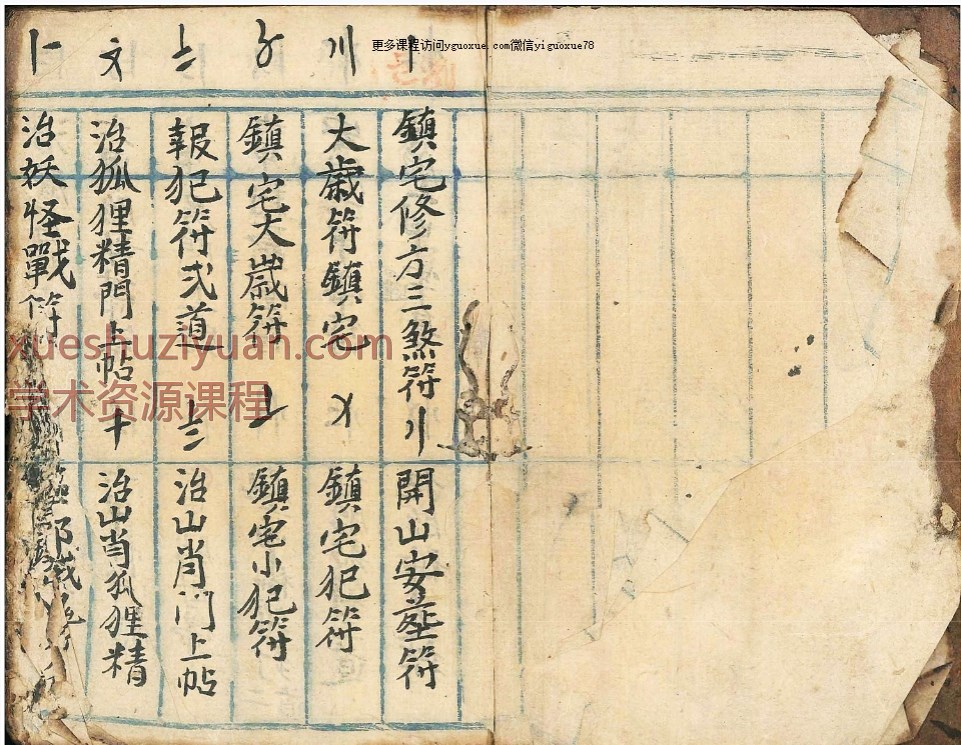 更多课程访问yguoxue.com微信yiguoxue78
〡
鎮宅修方三煞符
〢
開山安葬符
〣
大歲符鎮宅
〤
鎮宅犯符
〥
鎮宅大歲符
〦
鎮宅小犯符
〧
報犯符弍道
〨
治山肖門上帖
〩
治狐狸精門上帖
十
治山肖狐狸精
治妖怪戰符
xueshuziyuan.com
学术资源课程